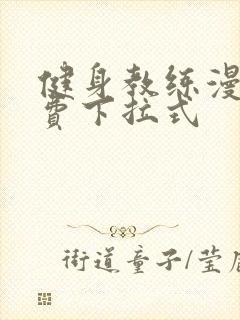 健身教练漫
费下拉式
街道童子/莹